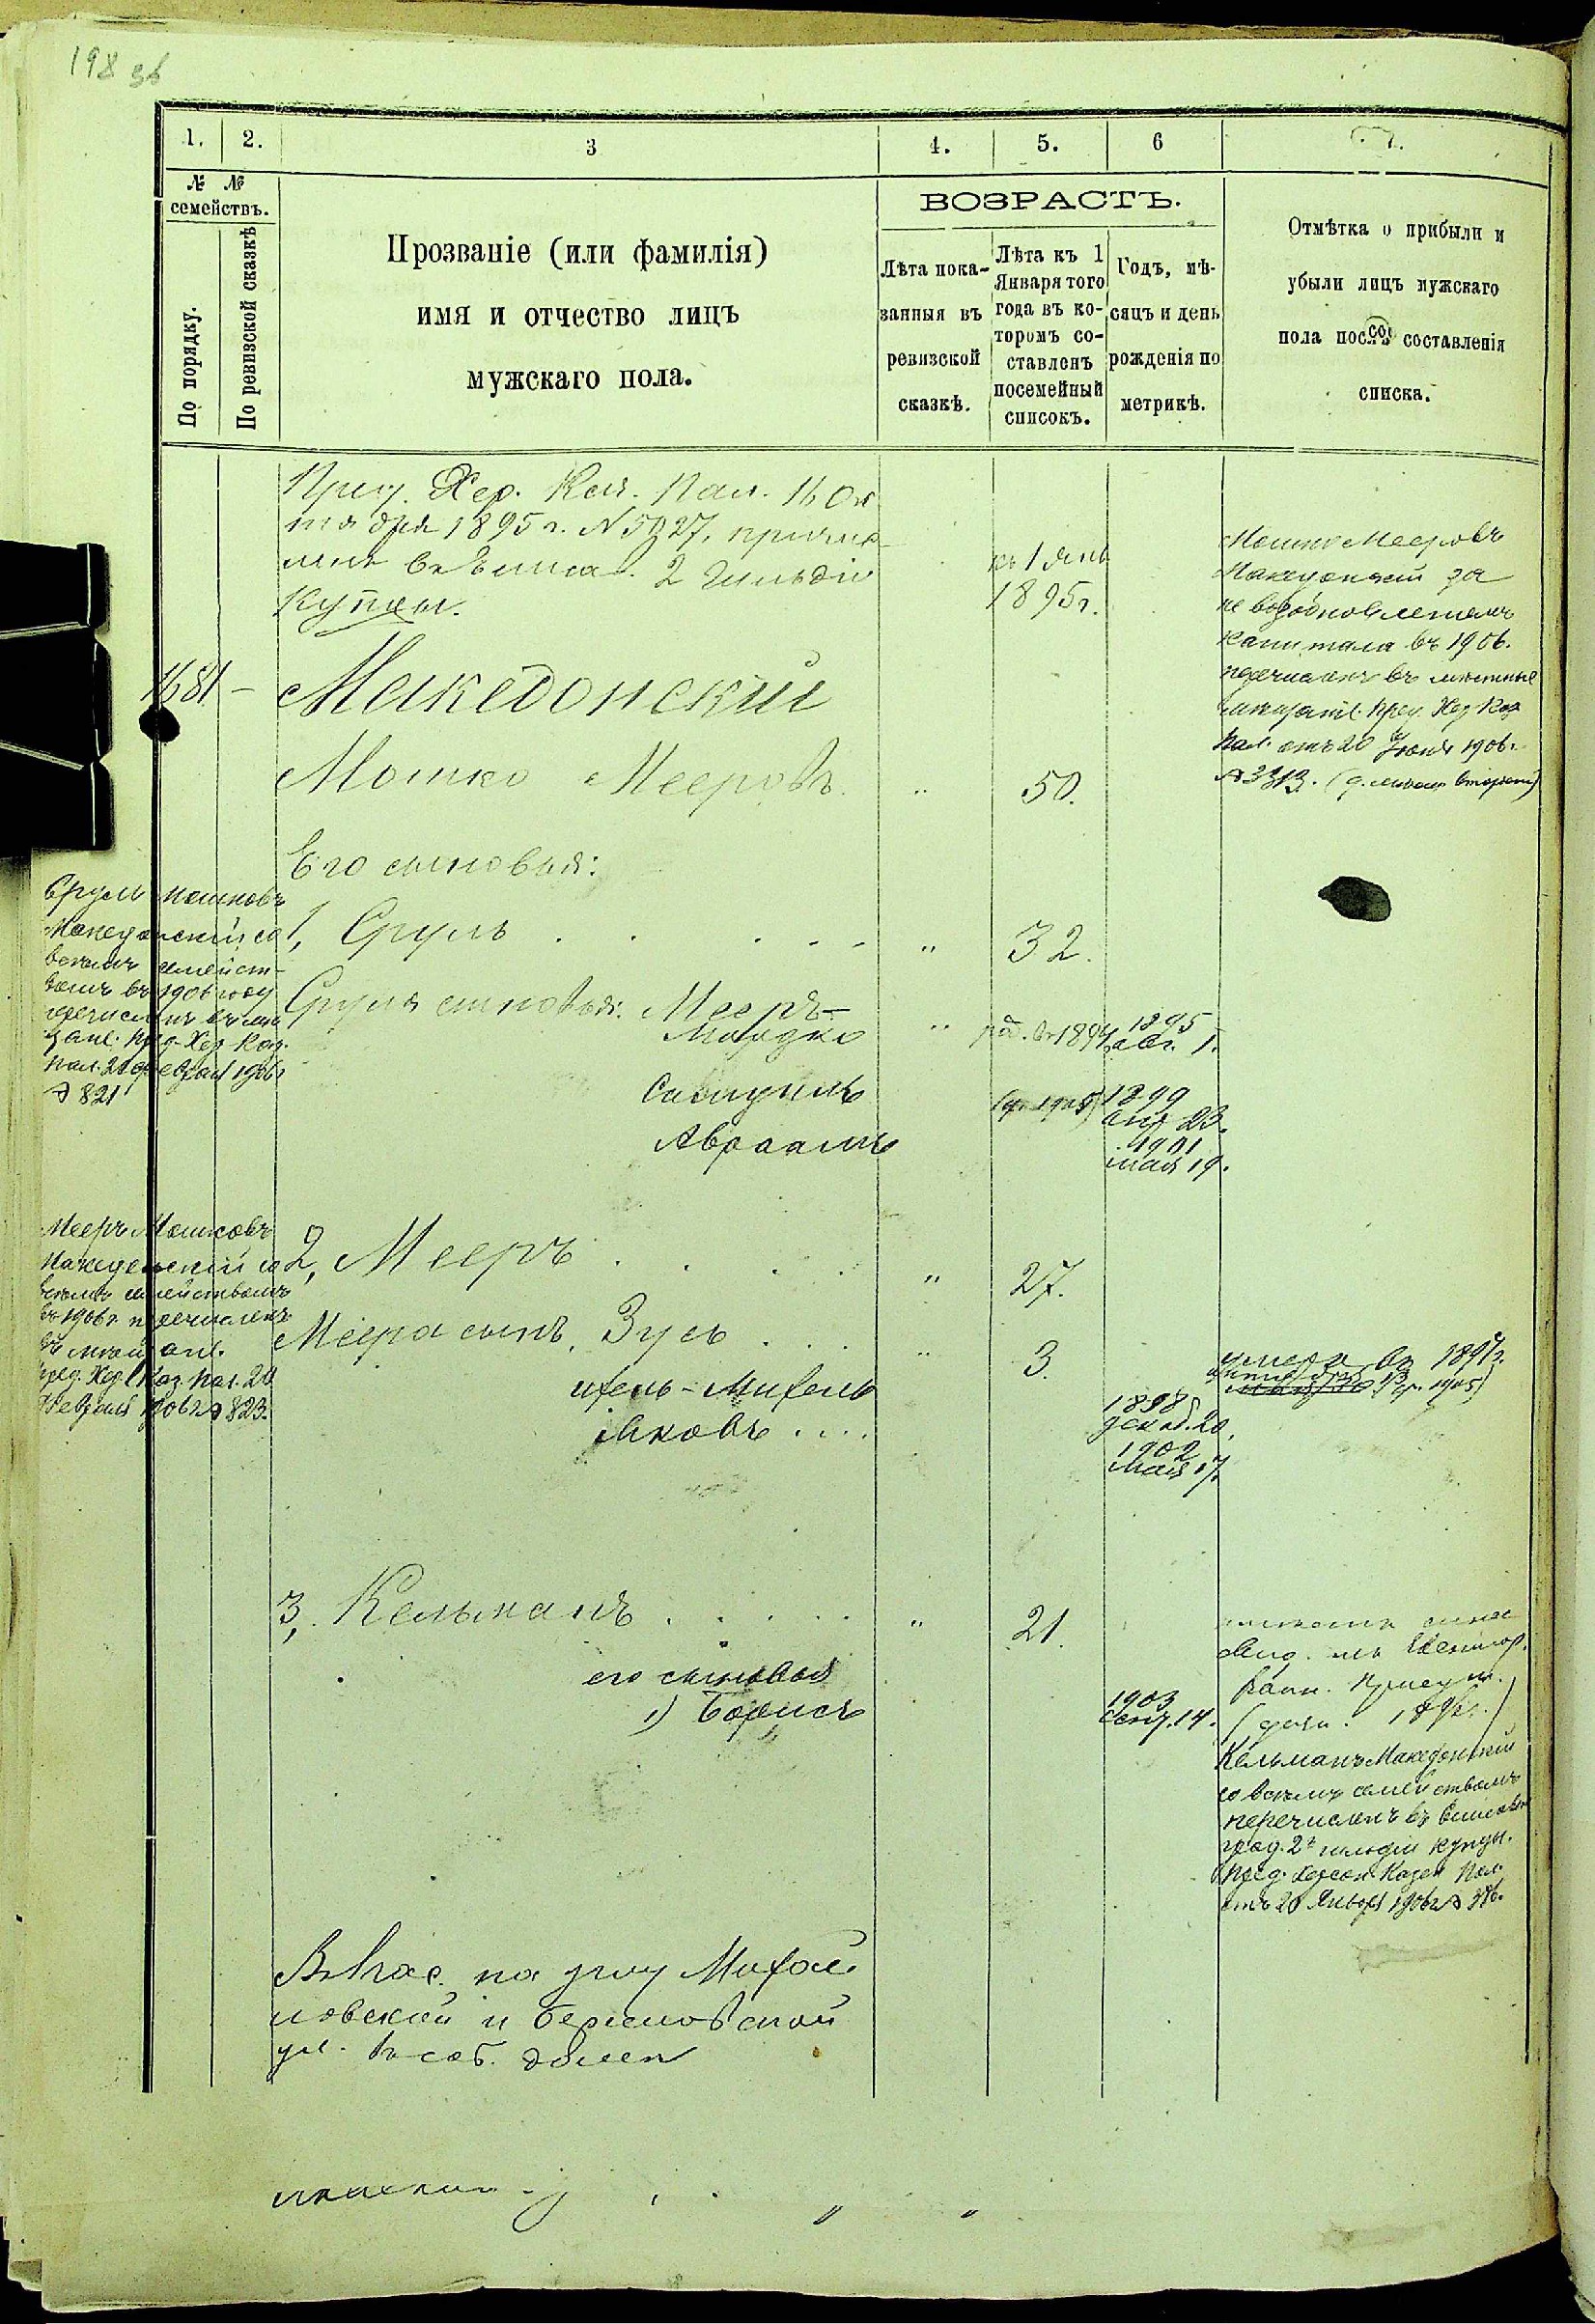 198 об
1. 2. 3 4. 5. 6 7.
№ № семействъ.
По порядку.
По ревизской сказкѣ
Прозваніе (или фамилія)
имя и отчество лицъ
мужскаго пола.
ВОЗРАСТЪ.
Лѣта пока-
занныя въ
ревизской
сказкѣ.
Лѣта къ 1
Января того
года въ ко-
торомъ со-
ставленъ
посемейный
списокъ.
Годъ, мѣ-
сяцъ и день
рожденія по
метрикѣ.
Отмѣтка о прибыли и
убыли лицъ мужскаго
пола послѣ составленія
списка.
Пред. Хер. Каз. Пал. 16 Ок
тября 1895 г. N 5927, причис
ленъ въ 2 гильдіи
купцы.
къ 1 Янв
1895 г.
1681 – Македонскій
Мошко Мееровъ. " 50.
Мошко Мееровъ
Македонскій за
невозобновленіемъ
капитала въ 1906.
перечисленъ въ мѣстные
мѣщане. Пред. Хер Каз
Пал. отъ 20 Іюня 1906 г.
№ 3313.
Его сыновья:
1, Сруль . . . . . " 32.
Сруль Мошковъ
Македонскій со
всѣмъ семейст-
вомъ въ 1906 году
перечисленъ въ мѣ
щане. Пред. Хер Каз.
Пал. 20 Февраля 1906 г
№ 821
Сруля сыновья: Мееръ-
Мордко " род. въ 1894 1895 авг. 1.
Самуилъ 1899
23.
Авраамъ 1901
мая 19.
2, Мееръ . . . . " 27.
Мееръ Мошковъ
Македонскій со
всѣмъ семействомъ
въ 1906 г. перечисленъ
въ мѣщане.
Пред. Хер. Каз. Пал. 20
Февраля 1906 г № 823.
Меера сынъ, Зусь . . . " 3.
умеръ въ 1897 г.
Михель 1898
декаб. 20.
Яковъ . . . . 1902
Мая 17.
3, Кельманъ . . . . . " 21.
его сыновья
1) Борисъ 1903
Сент. 14.
Кельманъ Македонскій
со всѣмъ семействомъ
перечисленъ въ
град. 2й гильдіи купцы.
Пред. Херсон. Казен Пал.
отъ 20 Января 1906 г №
на углу Михай
ловской и
ул. въ соб. домѣ